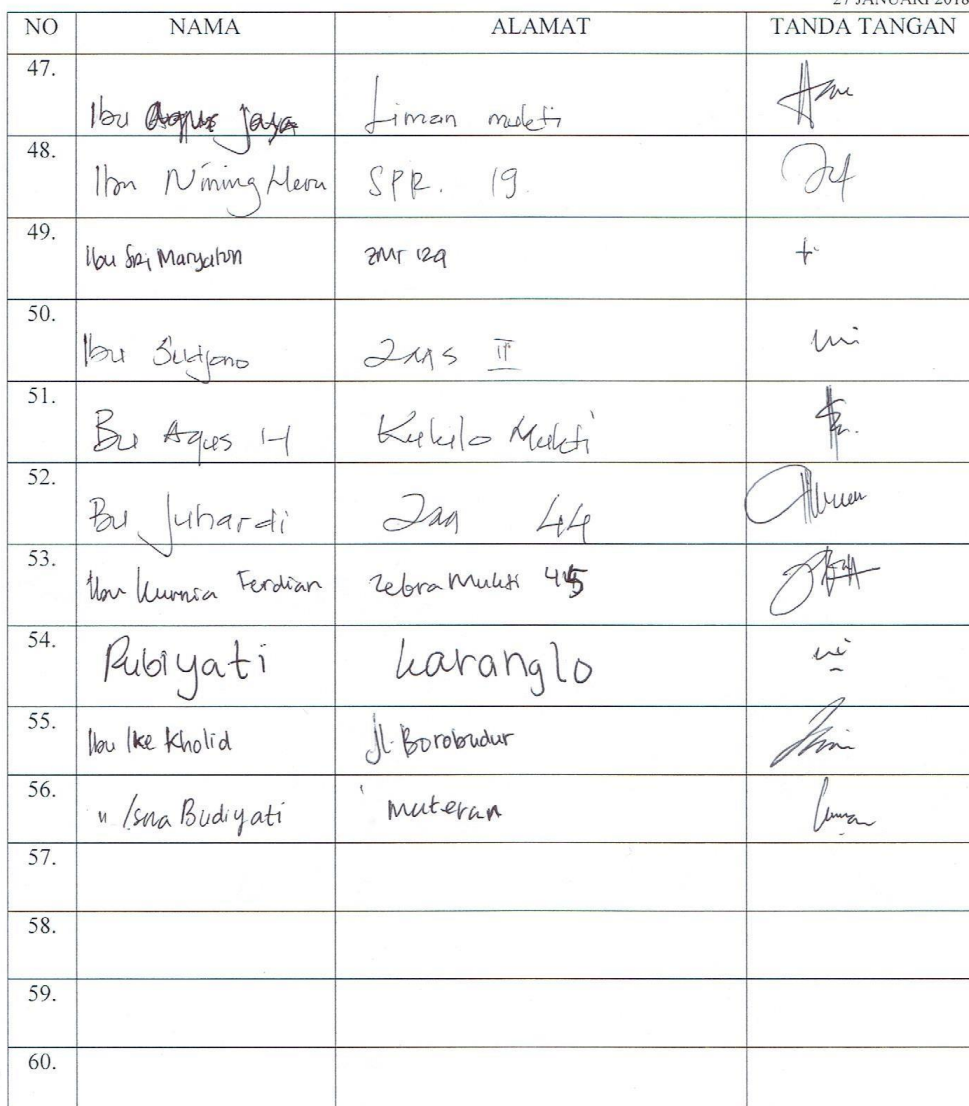 27 JANUARI 2018
NO NAMA ALAMAT TANDA TANGAN
47. Ibu Agus Jaya Liman mukti
48. Ibu Nining Heru SPR. 19.
49. Ibu Sri Maryatun ZMT 129
50. Ibu Sudjono II
51. Bu Agus H Kukilo Mukti
52. Bu Juhardi 44
53. Ibu Kurnia Ferdian Zebra Mukti 45
54. Rubiyati Karanglo
55. Ibu Ike Kholid Jl. Borobudur
56. " Isna Budiyati Muteran
57.
58.
59.
60.